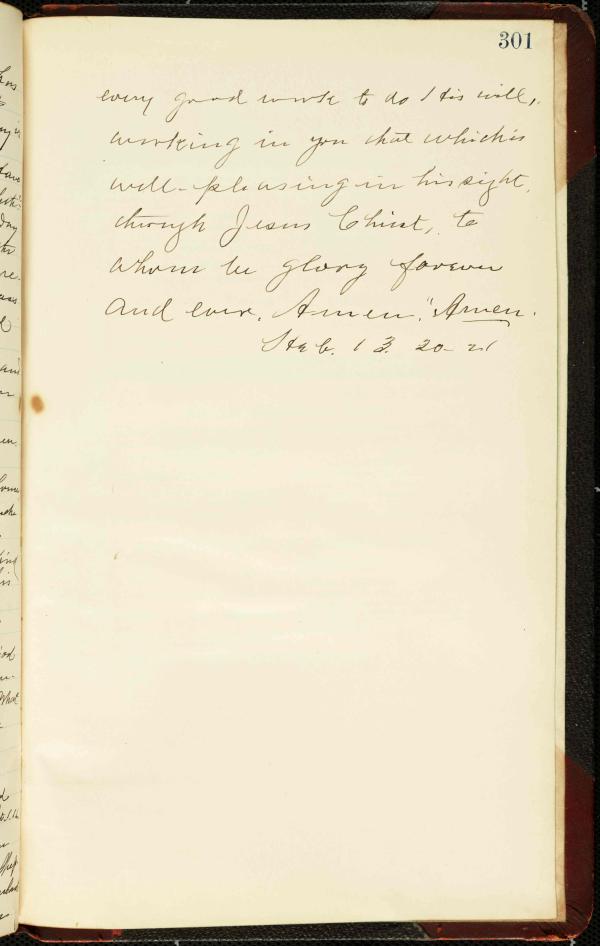 301
every good work to do His will,
working in you that which is
well-pleasing in his sight,
through Jesus Christ, to
whom be glory forever
and ever. Amen." Amen.
Heb. 13. 20-21